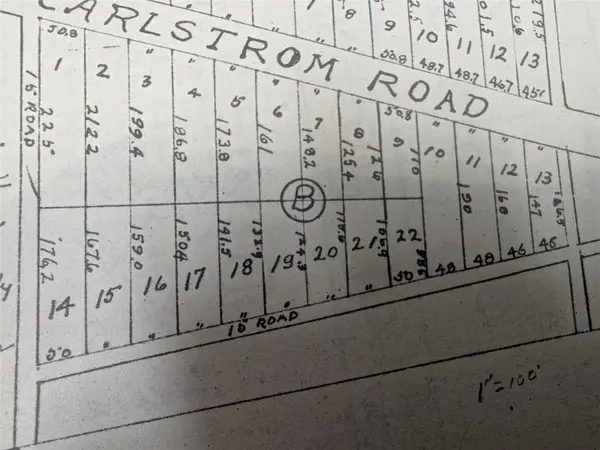 CARLSTROM ROAD
8 9 10 11 12 13
50.8 48.7 48.7 46.7 45
50.8 " " " " " " " 50.8 " " " "
1 2 3 4 5 6 7 8 9 10 11 12 13
15' ROAD
225 212.2 199.4 186.8 173.8 161 148.2 110 190 160 147
B
176.2 167.6 159.0 150.4 141.5 132.9 124.3 106.9
14 15 16 17 18 19 20 21 22
50 " " " " " " " 50 48 48 46 45
15' ROAD
1"=100'